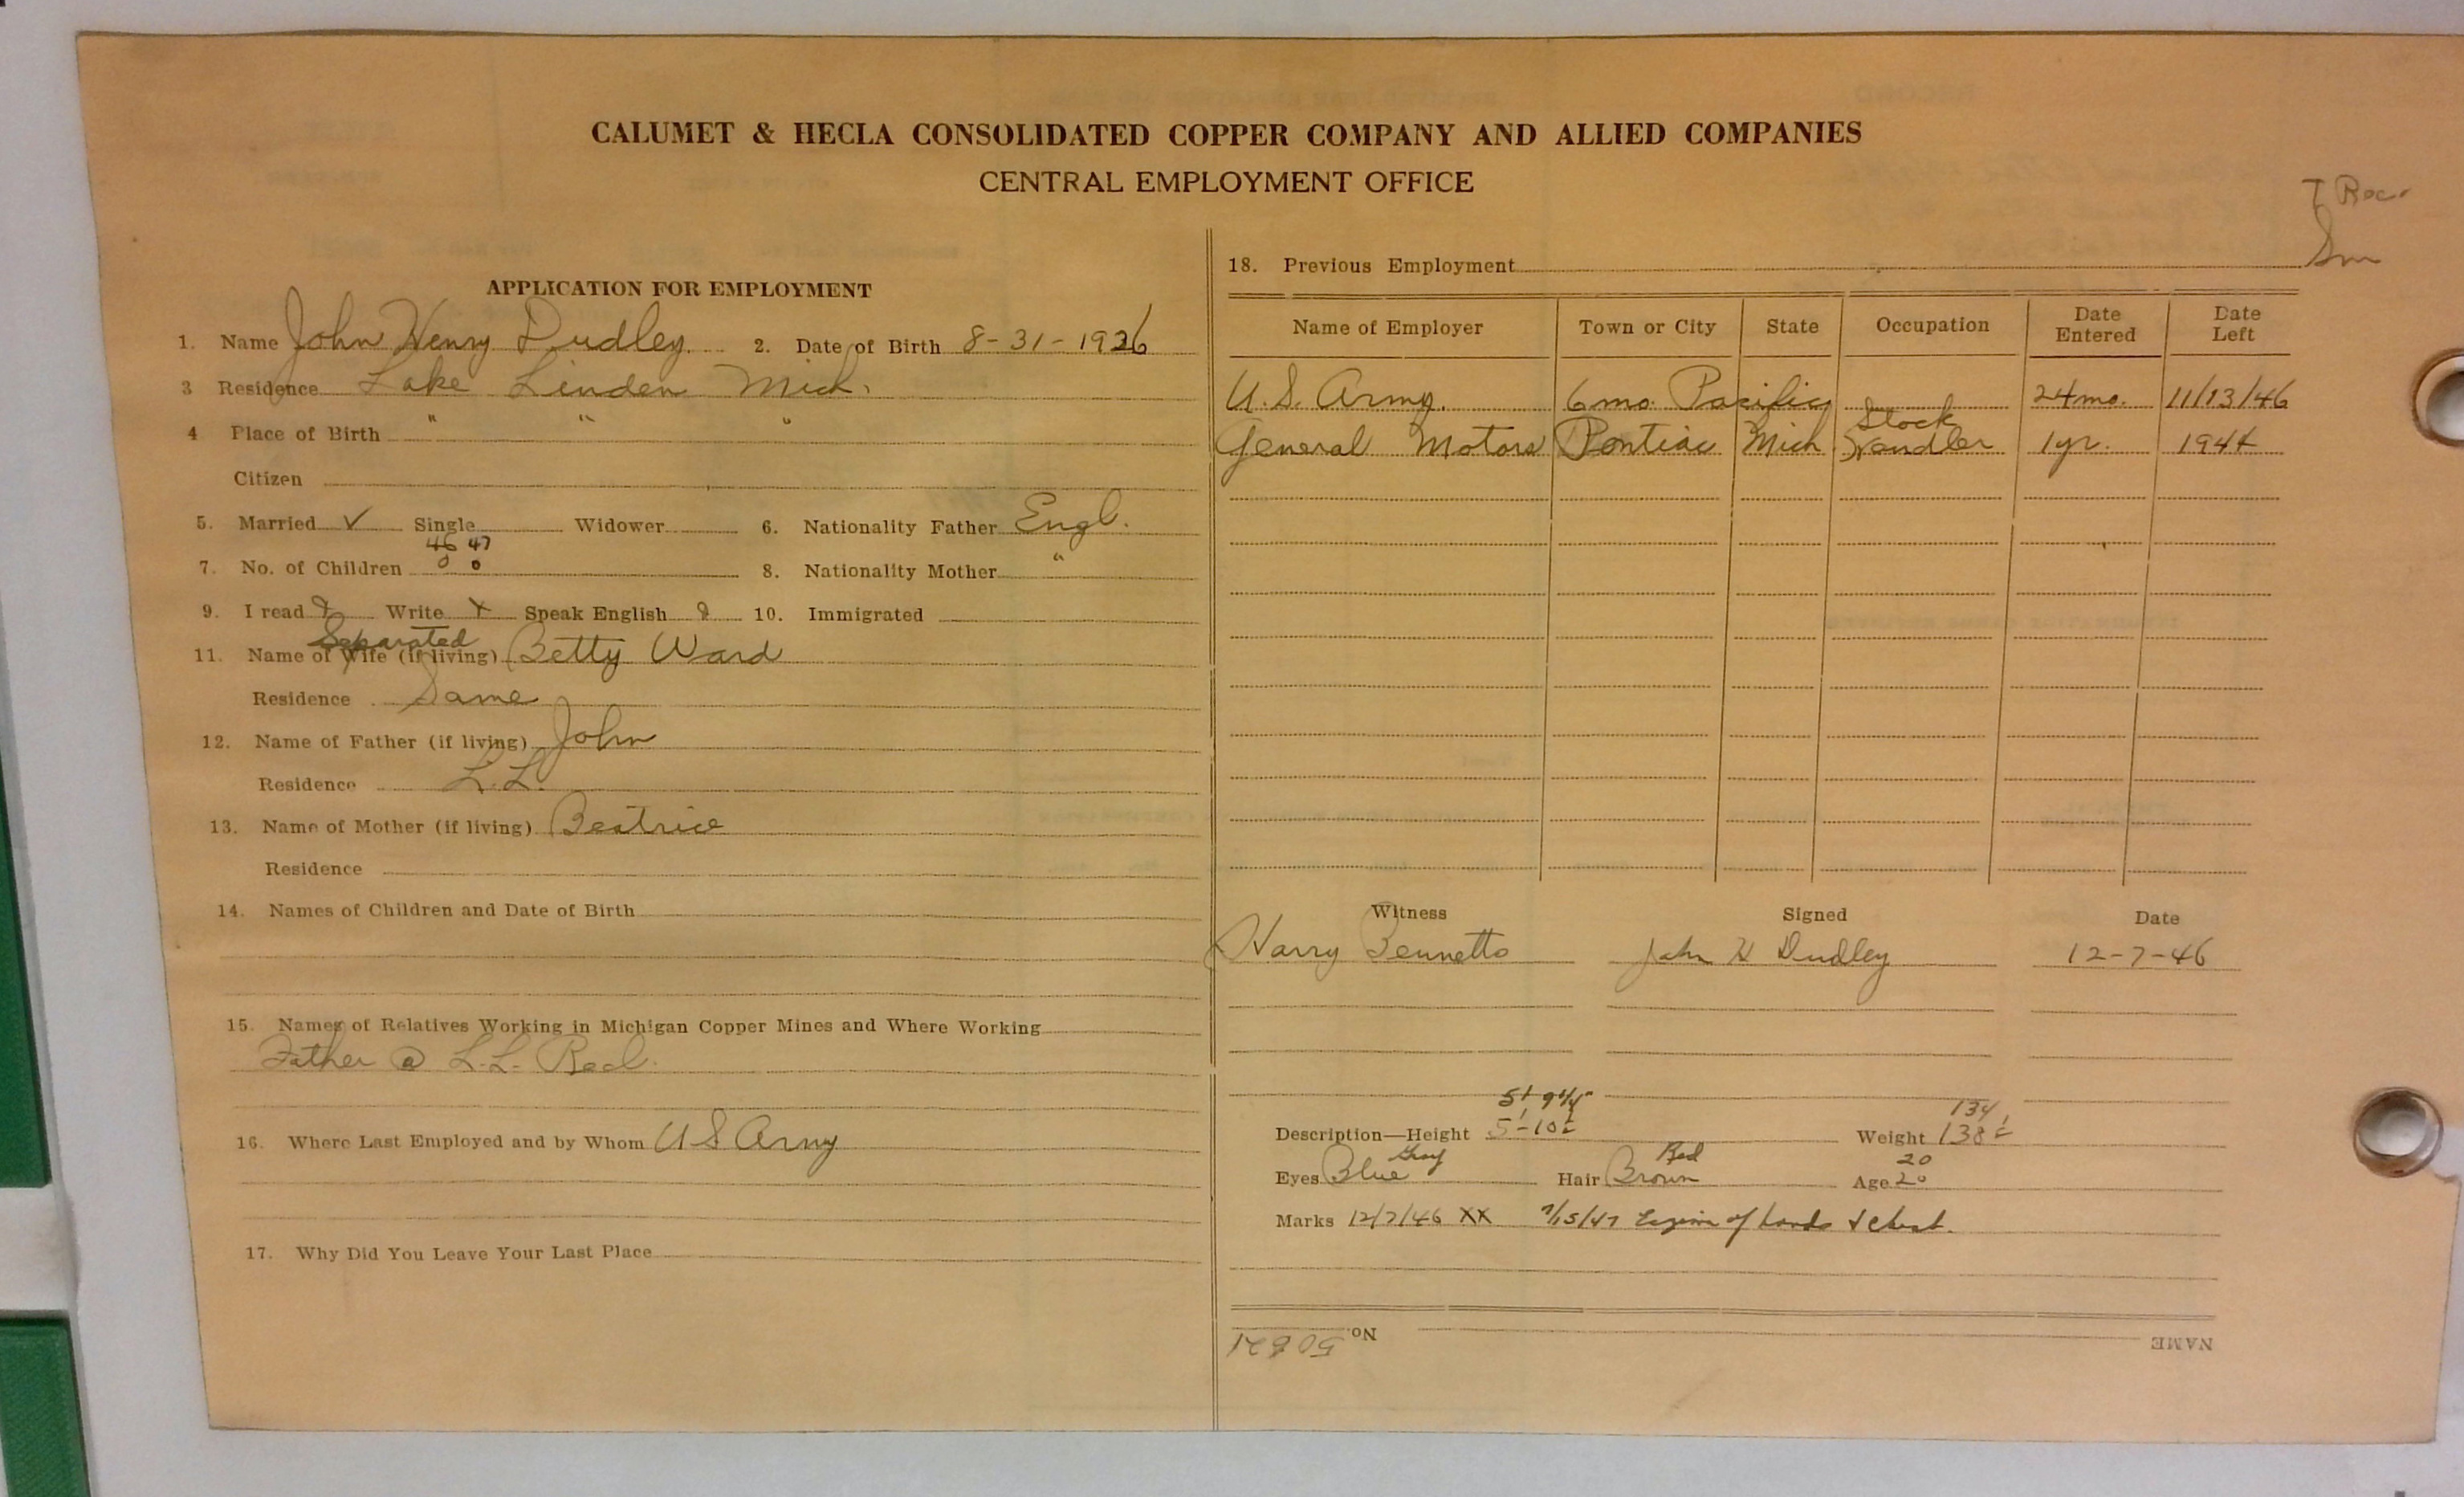 CALUMET & HECLA CONSOLIDATED COPPER COMPANY AND ALLIED COMPANIES
CENTRAL EMPLOYMENT OFFICE
T Rec.
Sm
APPLICATION FOR EMPLOYMENT
1. Name John Henry Dudley 2. Date of Birth 8-31-1926
3 Residence Lake Linden Mich.
4 Place of Birth " " "
Citizen
5. Married ✓ Single Widower 6. Nationality Father Engl.
46 47
7. No. of Children 0 0 8. Nationality Mother "
9. I read Write X Speak English 10. Immigrated
Separated
11. Name of Wife (if living) Betty Ward
Residence Same
12. Name of Father (if living) John
Residence L.L.
13. Name of Mother (if living) Beatrice
Residence
14. Names of Children and Date of Birth
15. Names of Relatives Working in Michigan Copper Mines and Where Working
Father @ L.L. Recl.
16. Where Last Employed and by Whom U S Army
17. Why Did You Leave Your Last Place
18. Previous Employment
Name of Employer Town or City State Occupation Date Entered Date Left
U.S. Army. 6 mo. Pacific 24 mo. 11/13/46
General Motors Pontiac Mich Stock Handler 1 yr. 1944
Witness Signed Date
Harry Bennetts John H Dudley 12-7-46
5' 9 1/4"
134
Description—Height 5'-10 Weight 138
Gray Red 20
Eyes Blue Hair Brown Age 20
Marks 12/7/46 XX 7/15/47 of hands & chest.
No. 50821 NAME